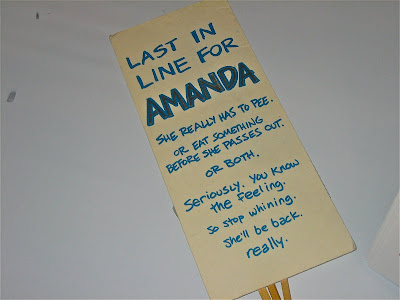 LAST IN
LINE FOR
AMANDA
SHE REALLY HAS TO PEE.
OR EAT SOMETHING
BEFORE SHE PASSES OUT.
OR BOTH.
Seriously. You know
the feeling.
So stop whining.
She'll be back.
really.